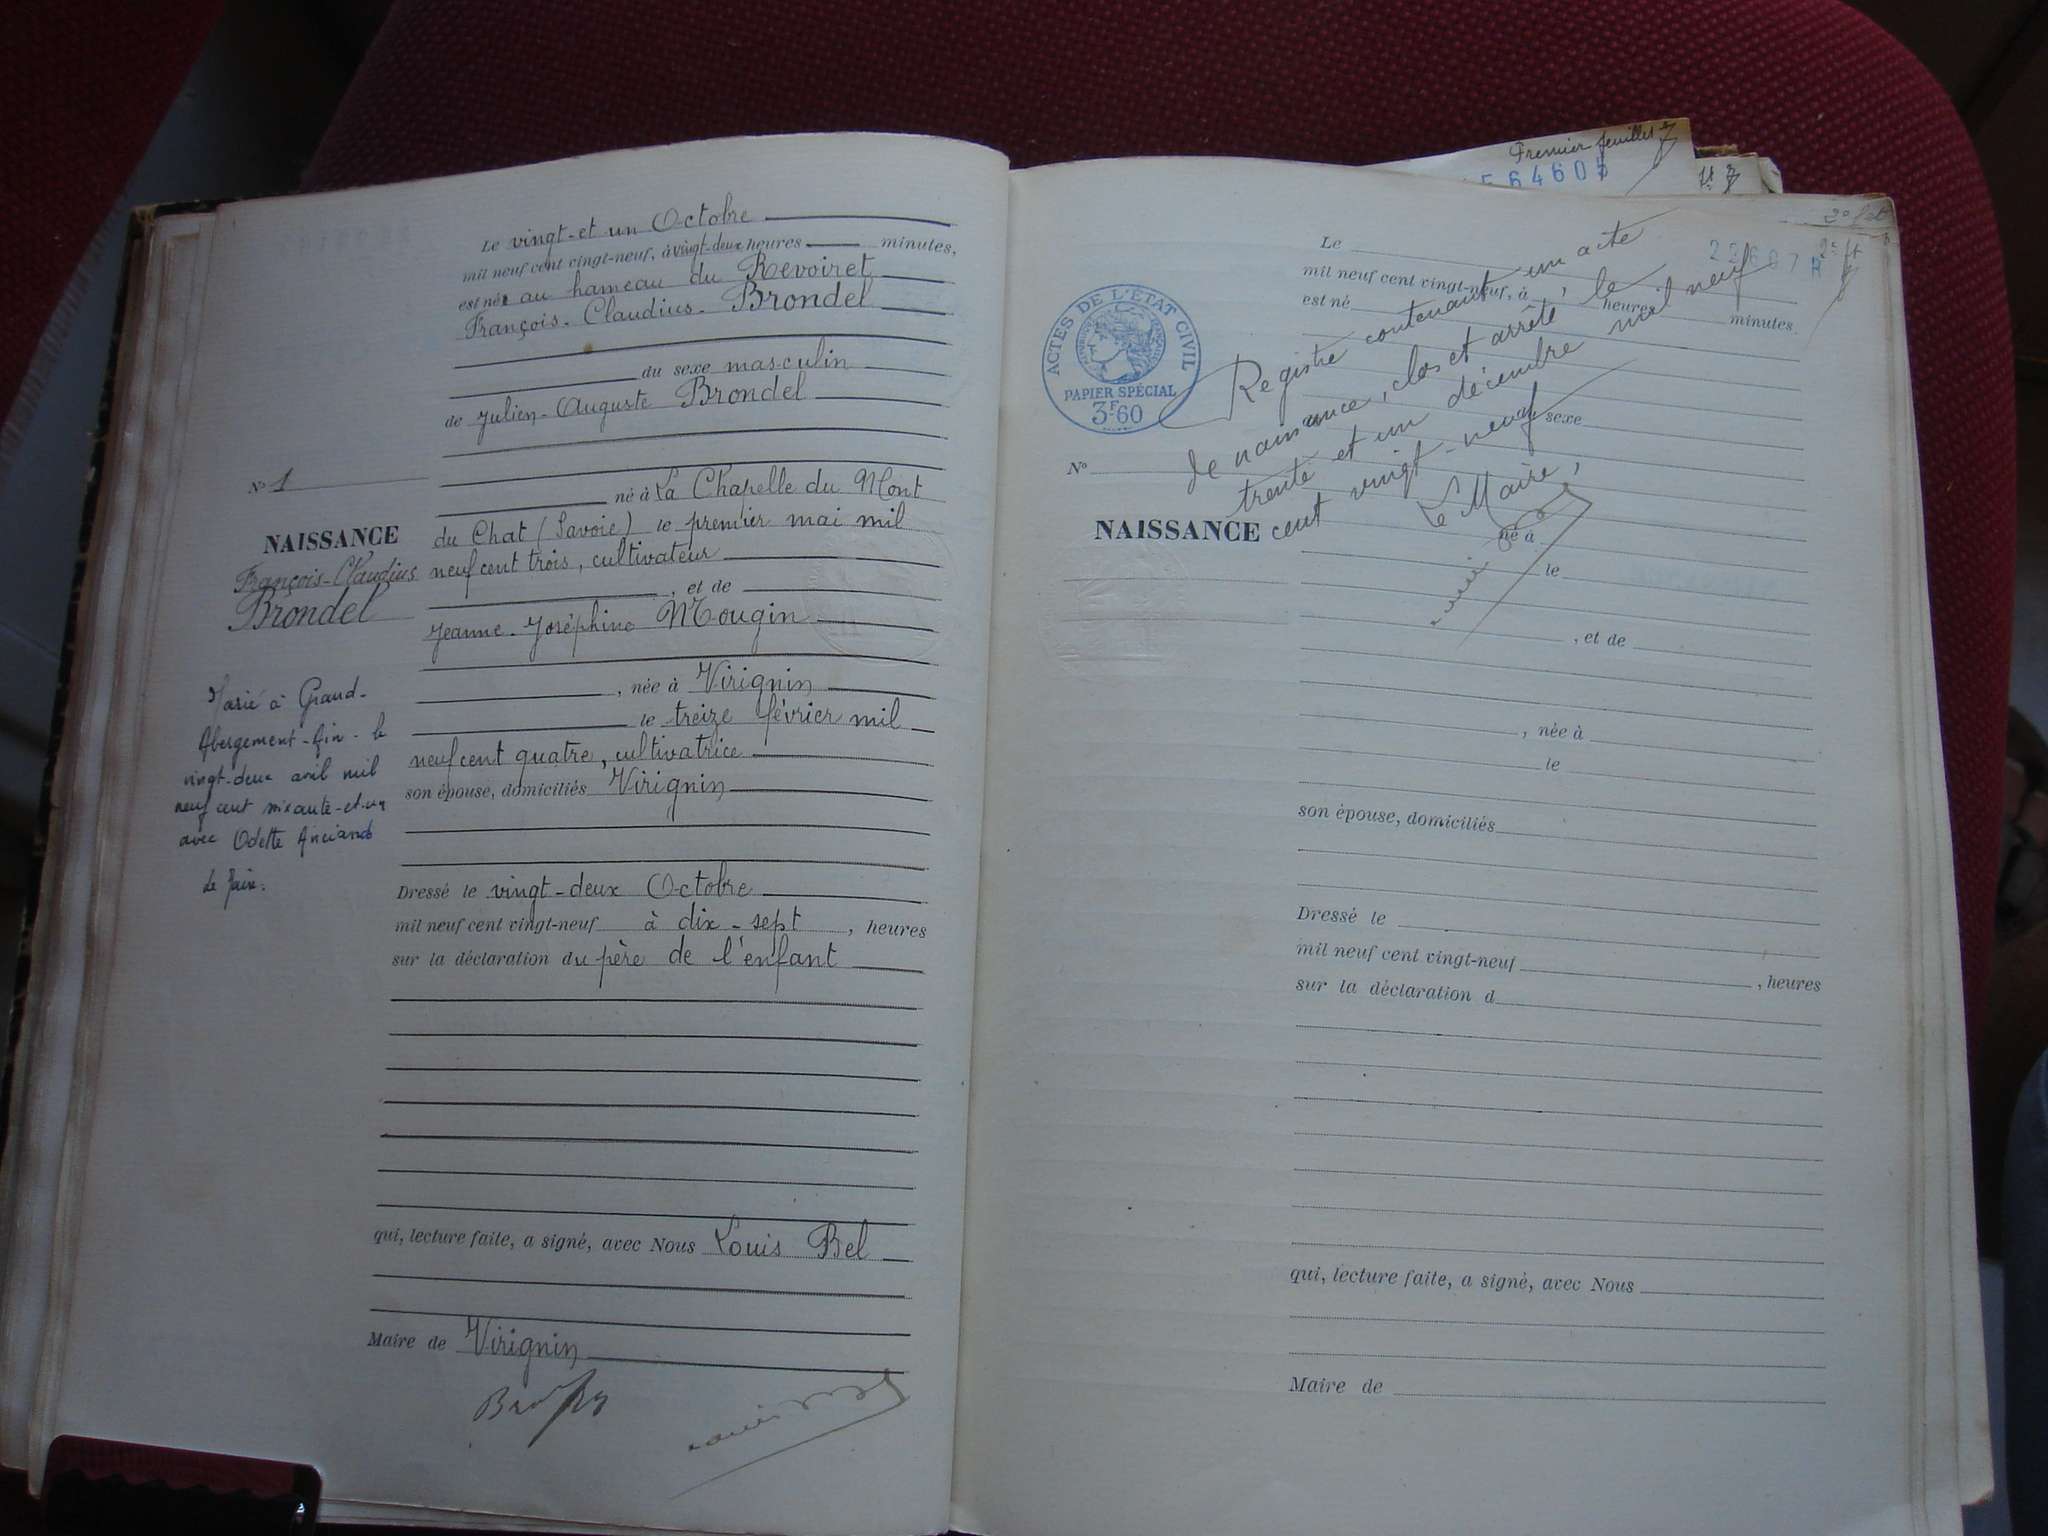 Le vingt-et un Octobre
mil neuf cent vingt-neuf, à vingt-deux heures minutes,
est né au hameau du Revoiret
François-Claudius-Brondel
du sexe masculin
de Julien-Auguste Brondel
né à La Chapelle du Mont
du Chat (Savoie) le premier mai mil
neuf cent trois, cultivateur
, et de
Jeanne-Joséphine Mougin
, née à Virignin
le treize février mil
neuf cent quatre, cultivatrice
son épouse, domiciliés Virignin
Dressé le vingt-deux Octobre
mil neuf cent vingt-neuf à dix-sept , heures
sur la déclaration du père de l'enfant
qui, lecture faite, a signé, avec Nous Louis Bel
Maire de Virignin
No 1
NAISSANCE
François-Claudius
Brondel
Marié à Grand-
Abergement-Ain- le
vingt-deux avril mil
neuf cent soixante-et-un
avec Odette
Le Maire:
Premier feuillet
64605
2e ft
22607 R
ACTES DE L'ÉTAT CIVIL
PAPIER SPÉCIAL
3F.60
Registre contenant un acte
de naissance, clos et arrêté le
trente et un décembre mil neuf
cent vingt-neuf
Le Maire,
Le
mil neuf cent vingt-neuf, à heures minutes.
est né
sexe
No
NAISSANCE
né à
le
, et de
, née à
le
son épouse, domiciliés
Dressé le
mil neuf cent vingt-neuf , heures
sur la déclaration d
qui, lecture faite, a signé, avec Nous
Maire de